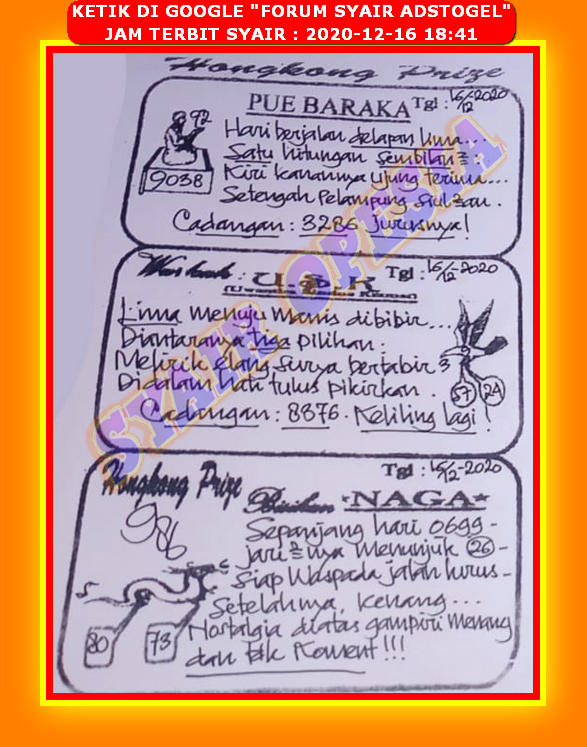 KETIK DI GOOGLE "FORUM SYAIR ADSTOGEL"
JAM TERBIT SYAIR : 2020-12-16 18:41
Hongkong Prize
PUE BARAKA Tgl : 16/12-2020
92
9038
Hari berjalan delapan lima...
Satu hitungan Sembilan2 :
Kiri kanannya ujung terima...
Setengah Pelampung Siul2an.
Cadangan : 3286 jurusnya!
U.S.K Tgl : 16/12-2020
Lima Menuju Manis dibibir...
Diantaranya tiga pilihan :
Melirik elang Surya bertabir
Didalam hati tulus pikirkan.
57 24
Cadangan : 8876. Keliling lagi!
SYAIR OPESIA
Hongkong Prize Tgl : 16/12-2020
Bisikan *NAGA*
986
Sepanjang hari 0699-
jari2nya Menunjuk 26-
Siap Waspada jalan lurus-
Setelahnya, Kenang...
80 73
Nostalgia diatas gampiri Menang
dan tak Koment!!!